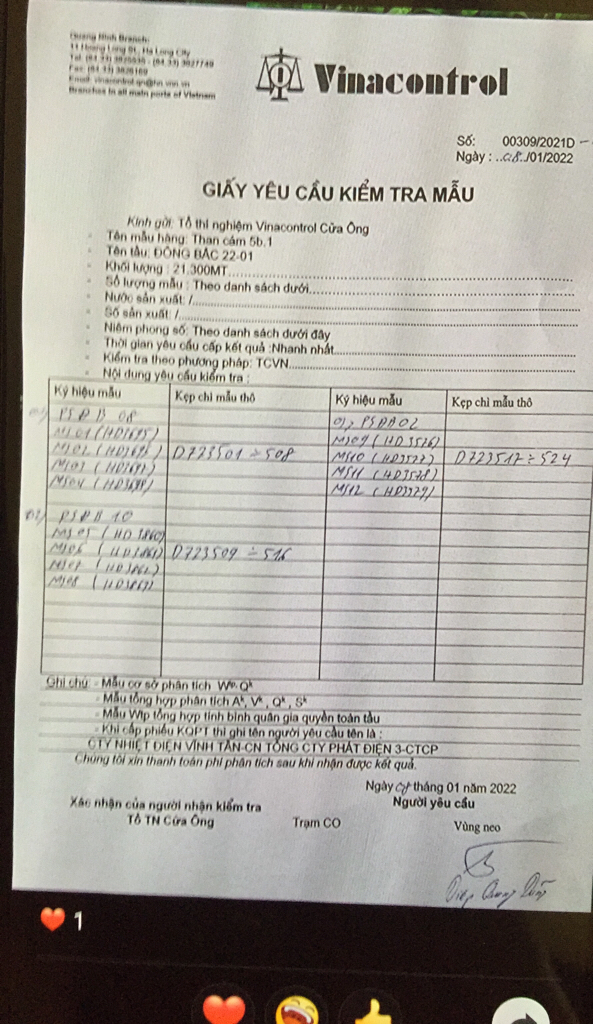 Quang Ninh Branch:
11 Hoang Long St., Ha Long City
Branches in all main ports of Vietnam
Vinacontrol
Số: 00309/2021D
Ngày : ..08../01/2022
GIẤY YÊU CẦU KIỂM TRA MẪU
Kính gửi: Tổ thí nghiệm Vinacontrol Cửa Ông
- Tên mẫu hàng: Than cám 5b.1
- Tên tàu: ĐÔNG BẮC 22-01
- Khối lượng : 21.300MT
- Số lượng mẫu : Theo danh sách dưới
- Nước sản xuất: /
- Số sản xuất: /
- Niêm phong số: Theo danh sách dưới đây
- Thời gian yêu cầu cấp kết quả :Nhanh nhất
- Kiểm tra theo phương pháp: TCVN
- Nội dung yêu cầu kiểm tra :
Ký hiệu mẫu Kẹp chì mẫu thô Ký hiệu mẫu Kẹp chì mẫu thô
PSĐB 08
MS01 (HD3695)
MS02 D723501 ÷ 508
MS03
MS04
PSĐB 10
MS05 (HD3860)
MS06 (HD3861) D723509 ÷ 516
MS07 (HD3862)
MS08 (HD3863)
MS09 (HD3526)
MS10 (HD3527) D723517 ÷ 524
MS11 (HD3528)
MS12 (HD3529)
Ghi chú: - Mẫu cơ sở phân tích Wtp, Qk
- Mẫu tổng hợp phân tích Ak, Vk , Qk , Sk
- Mẫu Wtp tổng hợp tính bình quân gia quyền toàn tàu
- Khi cấp phiếu KQPT thì ghi tên người yêu cầu tên là :
CTY NHIỆT ĐIỆN VĨNH TÂN-CN TỔNG CTY PHÁT ĐIỆN 3-CTCP
Chúng tôi xin thanh toán phí phân tích sau khi nhận được kết quả.
Ngày 08 tháng 01 năm 2022
Xác nhận của người nhận kiểm tra Người yêu cầu
Tổ TN Cửa Ông Trạm CO Vùng neo
1